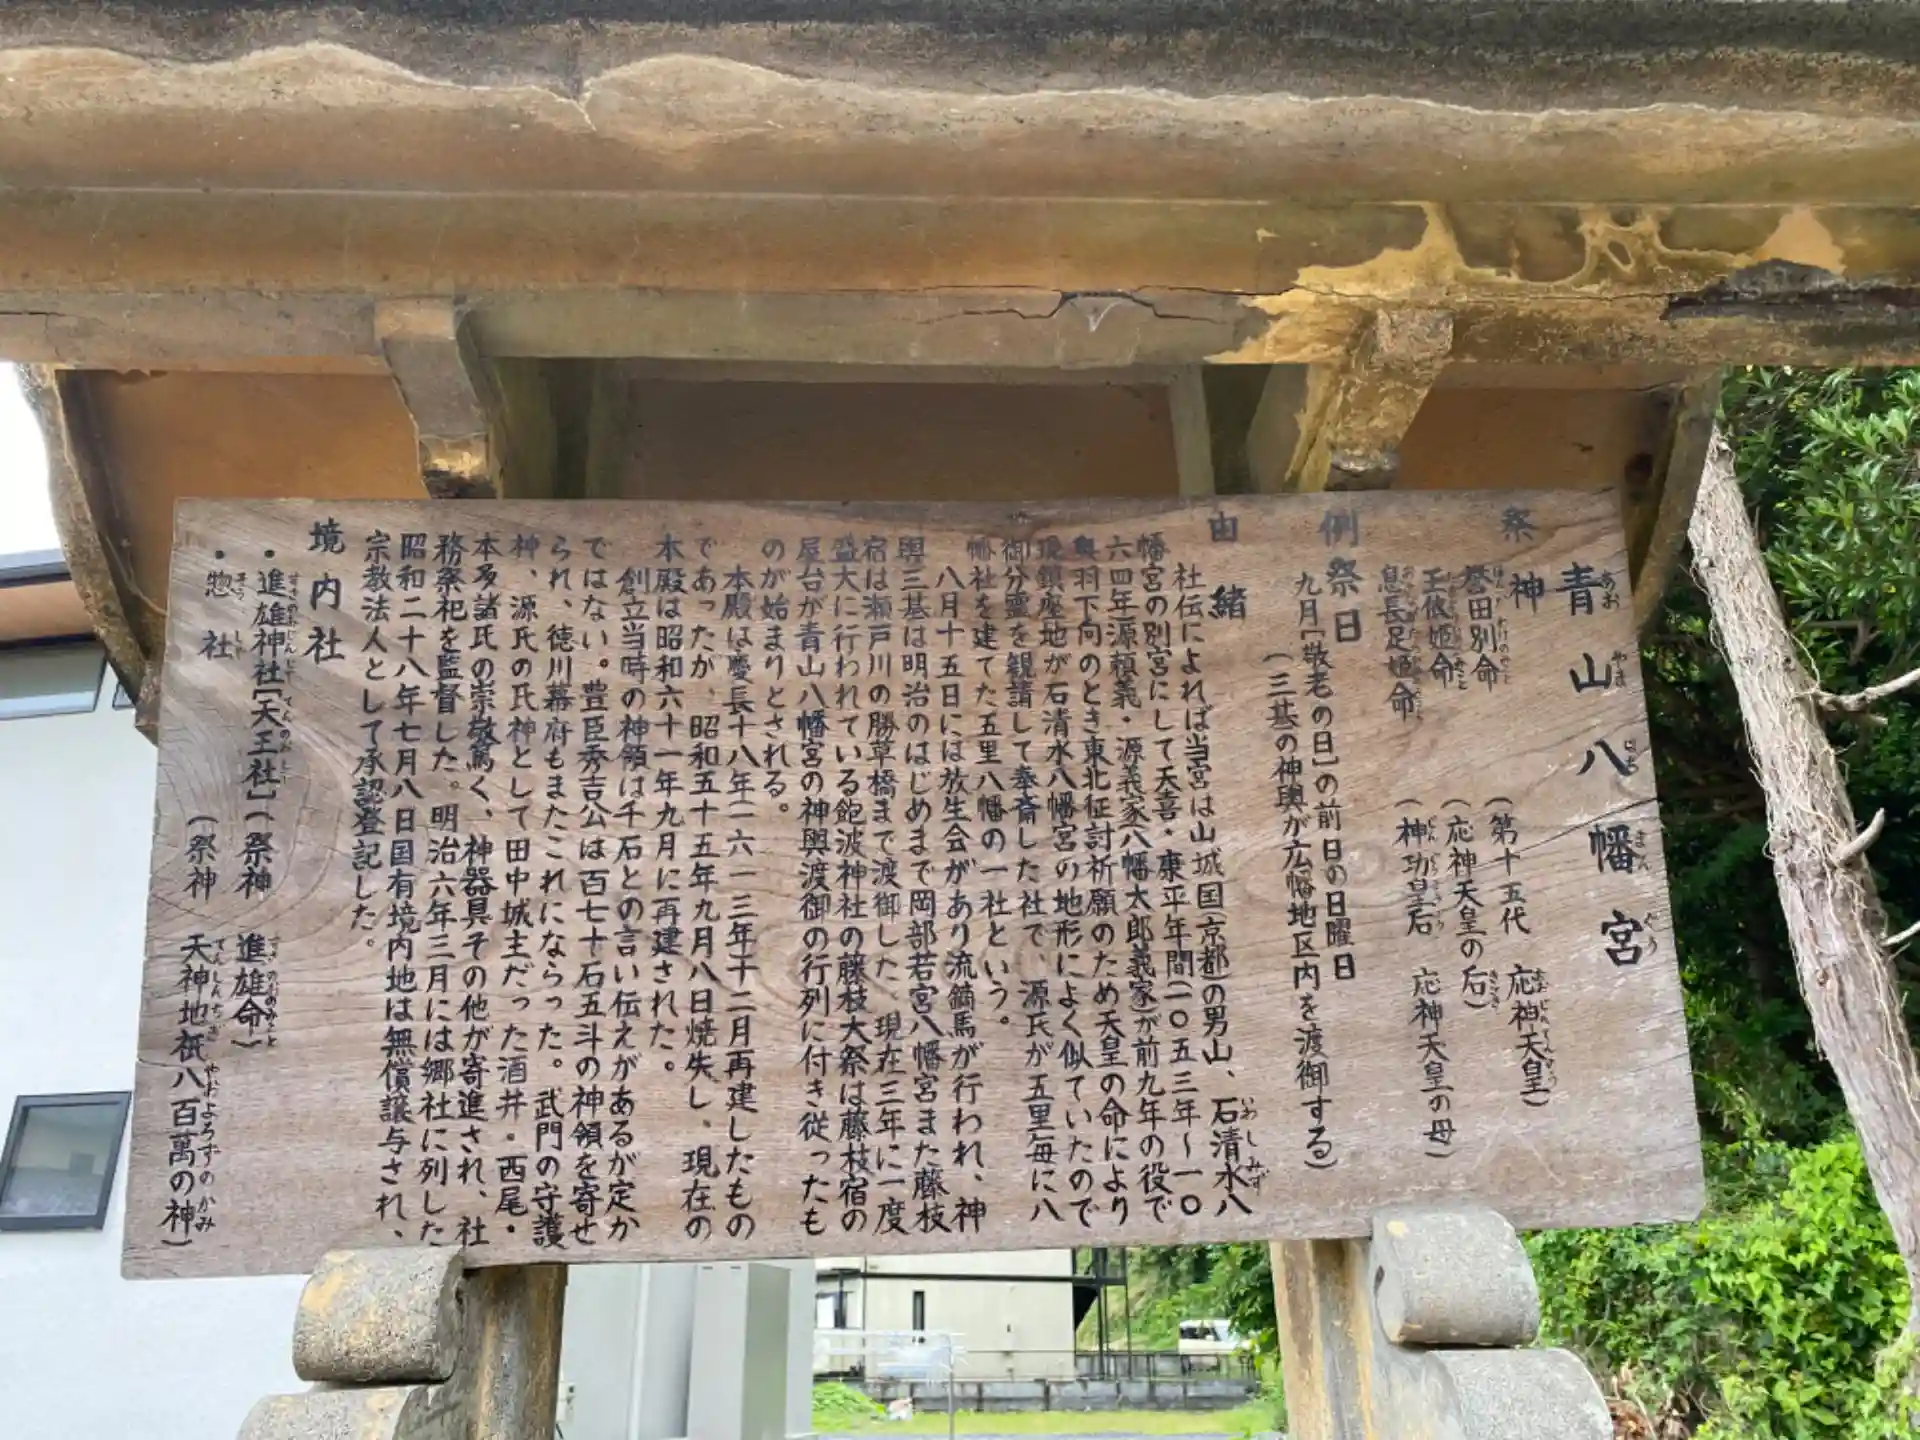 青山八幡宮
あお やま はち まん ぐう
祭神
誉田別命 (第十五代 応神天皇)
玉依姫命 (応神天皇の后)
息長足姫命 (神功皇后 応神天皇の母)
例祭日
九月[敬老の日]の前日の日曜日
(三基の神輿が広幡地区内を渡御する)
由緒
社伝によれば当宮は山城国(京都)の男山、石清水八
幡宮の別宮にして天喜・康平年間(一〇五三年~一〇
六四年)源頼義・源義家(八幡太郎義家)が前九年の役で
奥羽下向のとき東北征討祈願のため天皇の命により
現鎮座地が石清水八幡宮の地形によく似ていたので
御分霊を観請して奉斎した社で、源氏が五里毎に八
幡社を建てた五里八幡の一社という。
八月十五日には放生会があり流鏑馬が行われ、神
輿三基は明治のはじめまで岡部若宮八幡宮また藤枝
宿は瀬戸川の勝草橋まで渡御した。現在三年に一度
盛大に行われている飽波神社の藤枝大祭は藤枝宿の
屋台が青山八幡宮の神輿渡御の行列に付き従ったも
のが始まりとされる。
本殿は慶長十八年(一六一三年)十二月再建したもの
であったが、昭和五十五年九月八日焼失し、現在の
本殿は昭和六十一年九月に再建された。
創立当時の神領は千石との言い伝えがあるが定か
ではない。豊臣秀吉公は百七十石五斗の神領を寄せ
られ、徳川幕府もまたこれにならった。武門の守護
神、源氏の氏神として田中城主だった酒井・西尾・
本多諸氏の崇敬篤く、神器具その他が寄進され、社
務祭祀を監督した。明治六年三月には郷社に列した
昭和二十八年七月八日国有境内地は無償譲与され、
宗教法人として承認登記した。
境内社
・進雄神社[天王社](祭神 進雄命)
・惣社 (祭神 天神地祇八百萬の神)